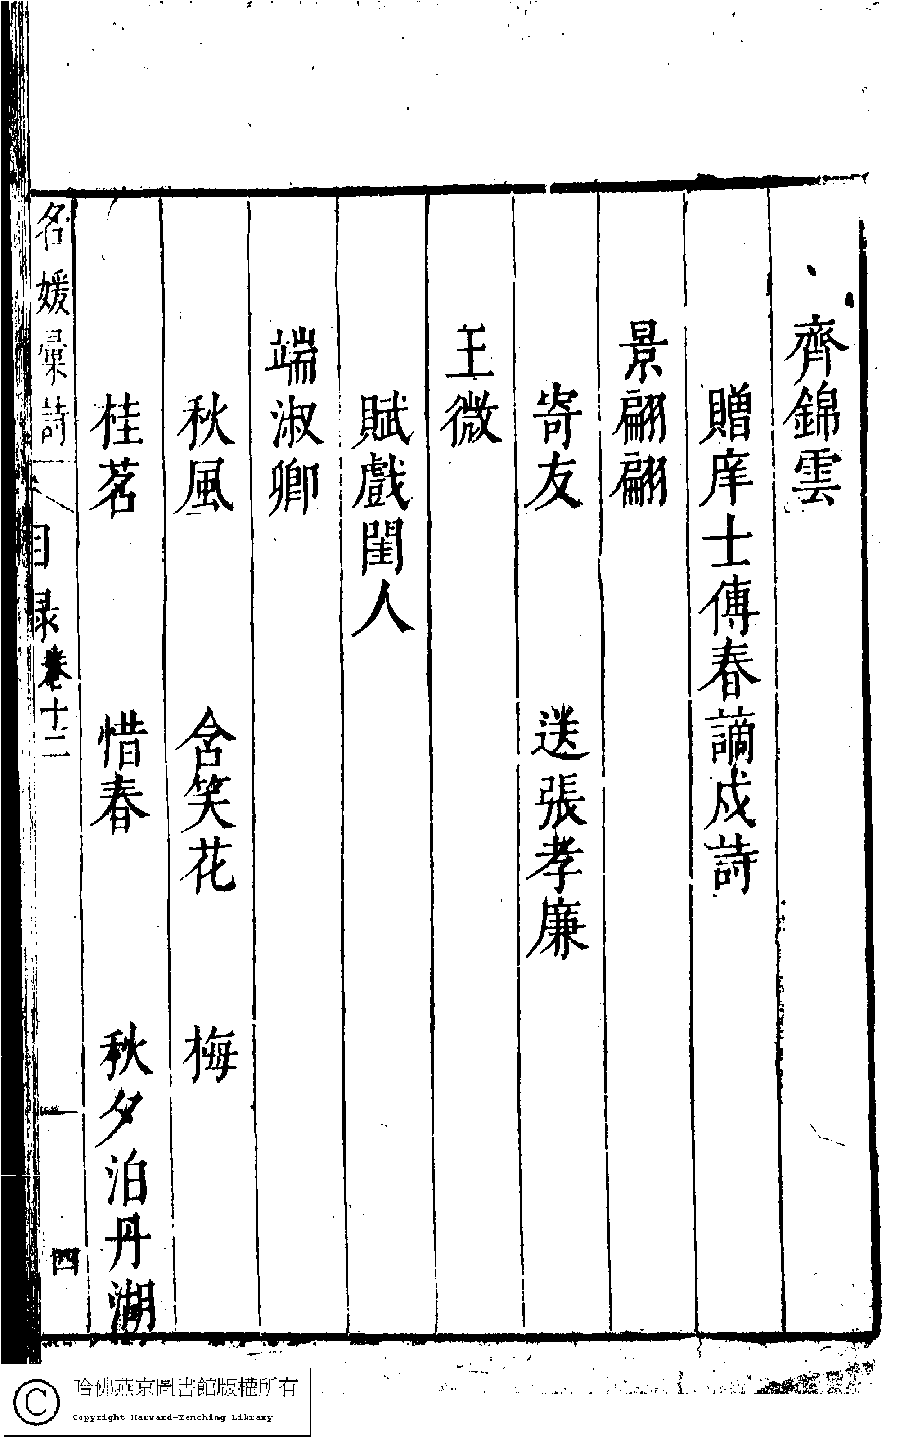 齊錦雲
贈庠士傅春謫戍詩
景翩翩
寄友 送張孝廉
王微
賦戲閨人
端淑卿
秋風 含笑花 梅
桂茗 惜春 秋夕泊丹湖
名媛彙詩 目录 卷十二 四
哈佛燕京圖書館版權所有
Copyright Harvard-Yenching Library